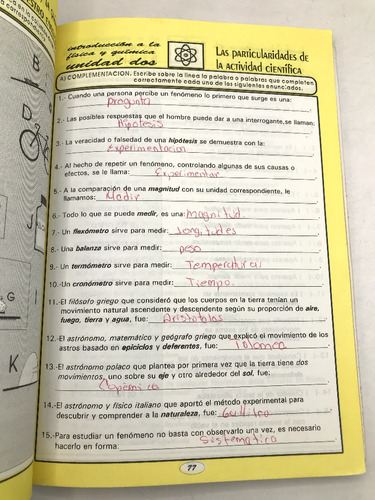 introducción a la
física y química
unidad dos
Las particularidades de
la actividad científica
A) COMPLEMENTACION. Escribe sobre la línea la palabra o palabras que completen
correctamente cada uno de los siguientes enunciados.
1.- Cuando una persona percibe un fenómeno lo primero que surge es una:
Pregunta
2.- Las posibles respuestas que el hombre puede dar a una interrogante, se llaman:
Hipotesis
3.- La veracidad o falsedad de una hipótesis se demuestra con la:
Experimentacion
4.- Al hecho de repetir un fenómeno, controlando algunas de sus causas o
efectos, se le llama: Experimentar
5.- A la comparación de una magnitud con su unidad correspondiente, le
llamamos: Madir
6.- Todo lo que se puede medir, es una: magnitud.
7.- Un flexómetro sirve para medir: longitudes
8.- Una balanza sirve para medir: peso
9.- Un termómetro sirve para medir:
10.- Un cronómetro sirve para medir: Tiempo.
11.- El filósofo griego que consideró que los cuerpos en la tierra tenían un
movimiento natural ascendente y descendente según su proporción de aire,
fuego, tierra y agua, fue:
12.- El astrónomo, matemático y geógrafo griego que explicó el movimiento de los
astros basado en epiciclos y deferentes, fue:
13.- El astrónomo polaco que plantea por primera vez que la tierra tiene dos
movimientos, uno sobre su eje y otro alrededor del sol, fue:
14.- El astrónomo y físico italiano que aportó el método experimental para
descubrir y comprender a la naturaleza, fue:
15.- Para estudiar un fenómeno no basta con observarlo una vez, es necesario
hacerlo en forma: Sistematico
77
B
D
G
K